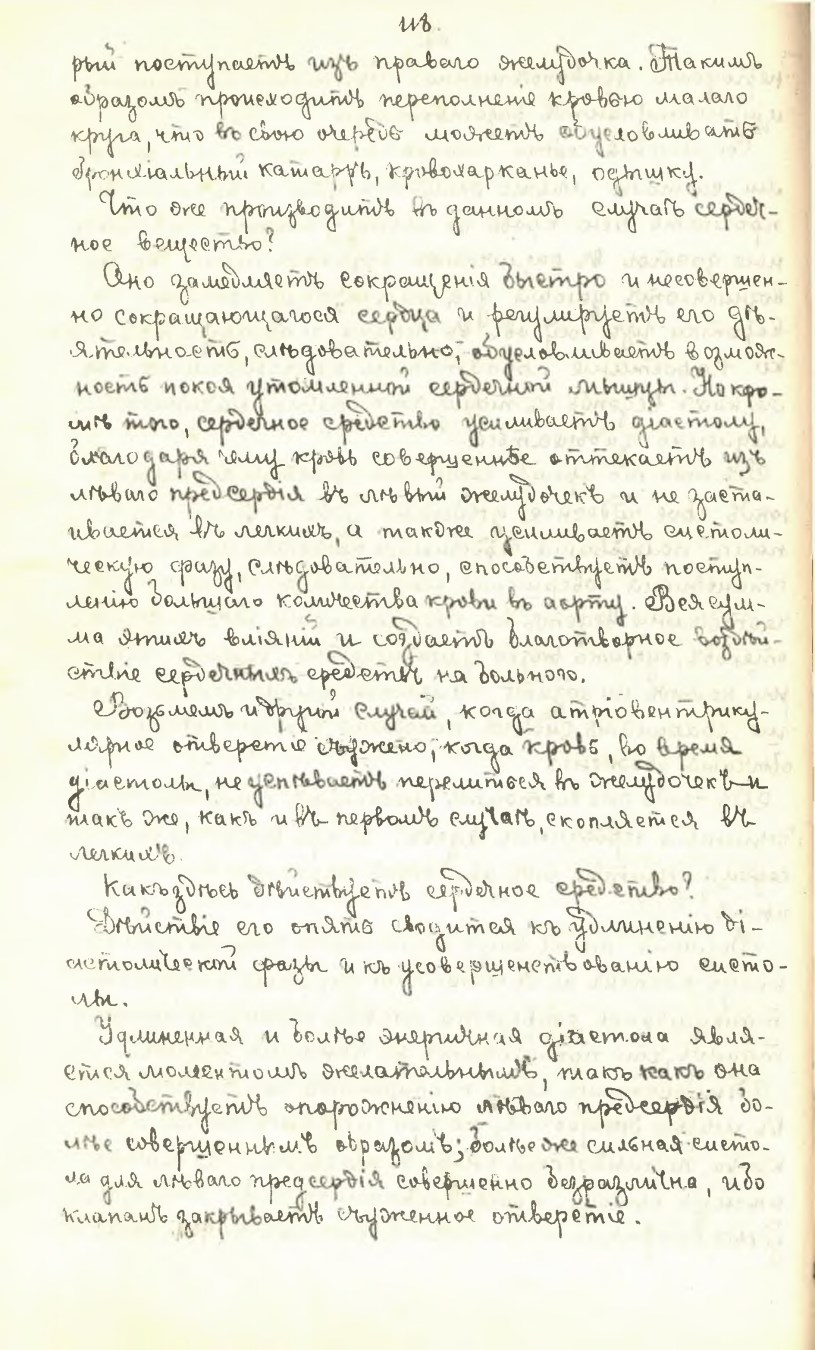 118.
рый поступаетъ изъ праваго желудочка. Такимъ
образомъ происходитъ переполненіе кровью малаго
круга, что въ свою очередь можетъ обусловливать
бронхіальный катарръ, кровохарканье, одышку.
Что же производитъ въ данномъ случаѣ сердеч-
ное вещество?
Оно замедляетъ сокращенія быстро и несовершен-
но сокращающагося сердца и регулируетъ его дѣ-
ятельность, слѣдовательно, обусловливаетъ возмож-
ность покоя утомленной сердечной мышцы. Но кро-
мѣ того, сердечное средство усиливаетъ діастолу,
благодаря чему кровь совершеннѣе оттекаетъ изъ
лѣваго предсердія въ лѣвый желудочекъ и не заста-
ивается въ легкихъ, а также усиливаетъ систоли-
ческую фазу, слѣдовательно, способствуетъ поступ-
ленію большаго количества крови въ аорту. Вся сум-
ма этихъ вліяній и создаетъ благотворное воздѣй-
ствіе сердечныхъ средствъ на больного.
Возьмемъ и другой случай, когда атріовентрику-
лярное отверстіе съужено, когда кровь, во время
діастолы, не успѣваетъ перелиться въ желудочекъ и
такъ же, какъ и въ первомъ случаѣ, скопляется въ
легкихъ.
Какъ здѣсь дѣйствуетъ сердечное средство?
Дѣйствіе его опять сводится къ удлиненію ді-
астолической фазы и къ усовершенствованію систо-
лы.
Удлиненная и болѣе энергичная діастола явля-
ется моментомъ желательнымъ, такъ какъ она
способствуетъ опорожненію лѣваго предсердія бо-
лѣе совершеннымъ образомъ; болѣе же сильная систо-
ла для лѣваго предсердія совершенно безразлична, ибо
клапанъ закрываетъ съуженное отверстіе.